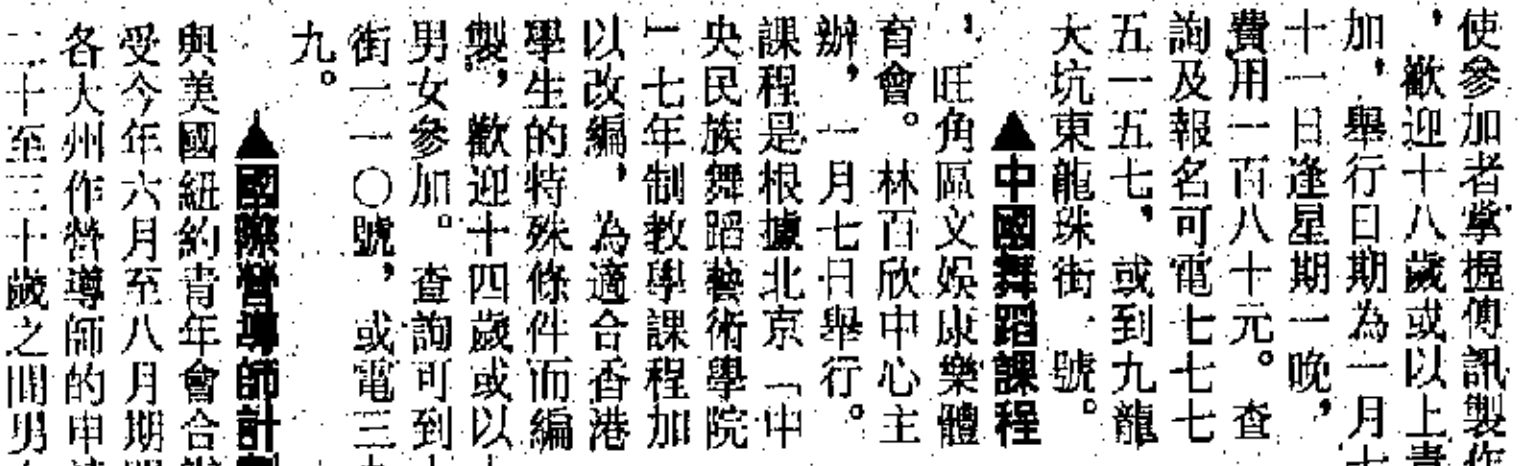 使參加者掌握傳訊製作
，歡迎十八歲或以上青
加，舉行日期為一月十
十一日逢星期一晚，
費用一百八十元。查
詢及報名可電七七七
五一五七，或到九龍
大坑東龍珠街一號。
▲中國舞蹈課程
，旺角區文娛康樂體
育會。林百欣中心主
辦，一月七日舉行。
課程是根據北京「中
央民族舞蹈藝術學院
」七年制教學課程加
以改編，為適合香港
學生的特殊條件而編
製，歡迎十四歲或以
男女參加。查詢可到
街一一〇號，或電三
九。
▲國際營導師計劃
與美國紐約青年會合辦
受今年六月至八月期
各大州作營導師的申
二十至三十歲之間男